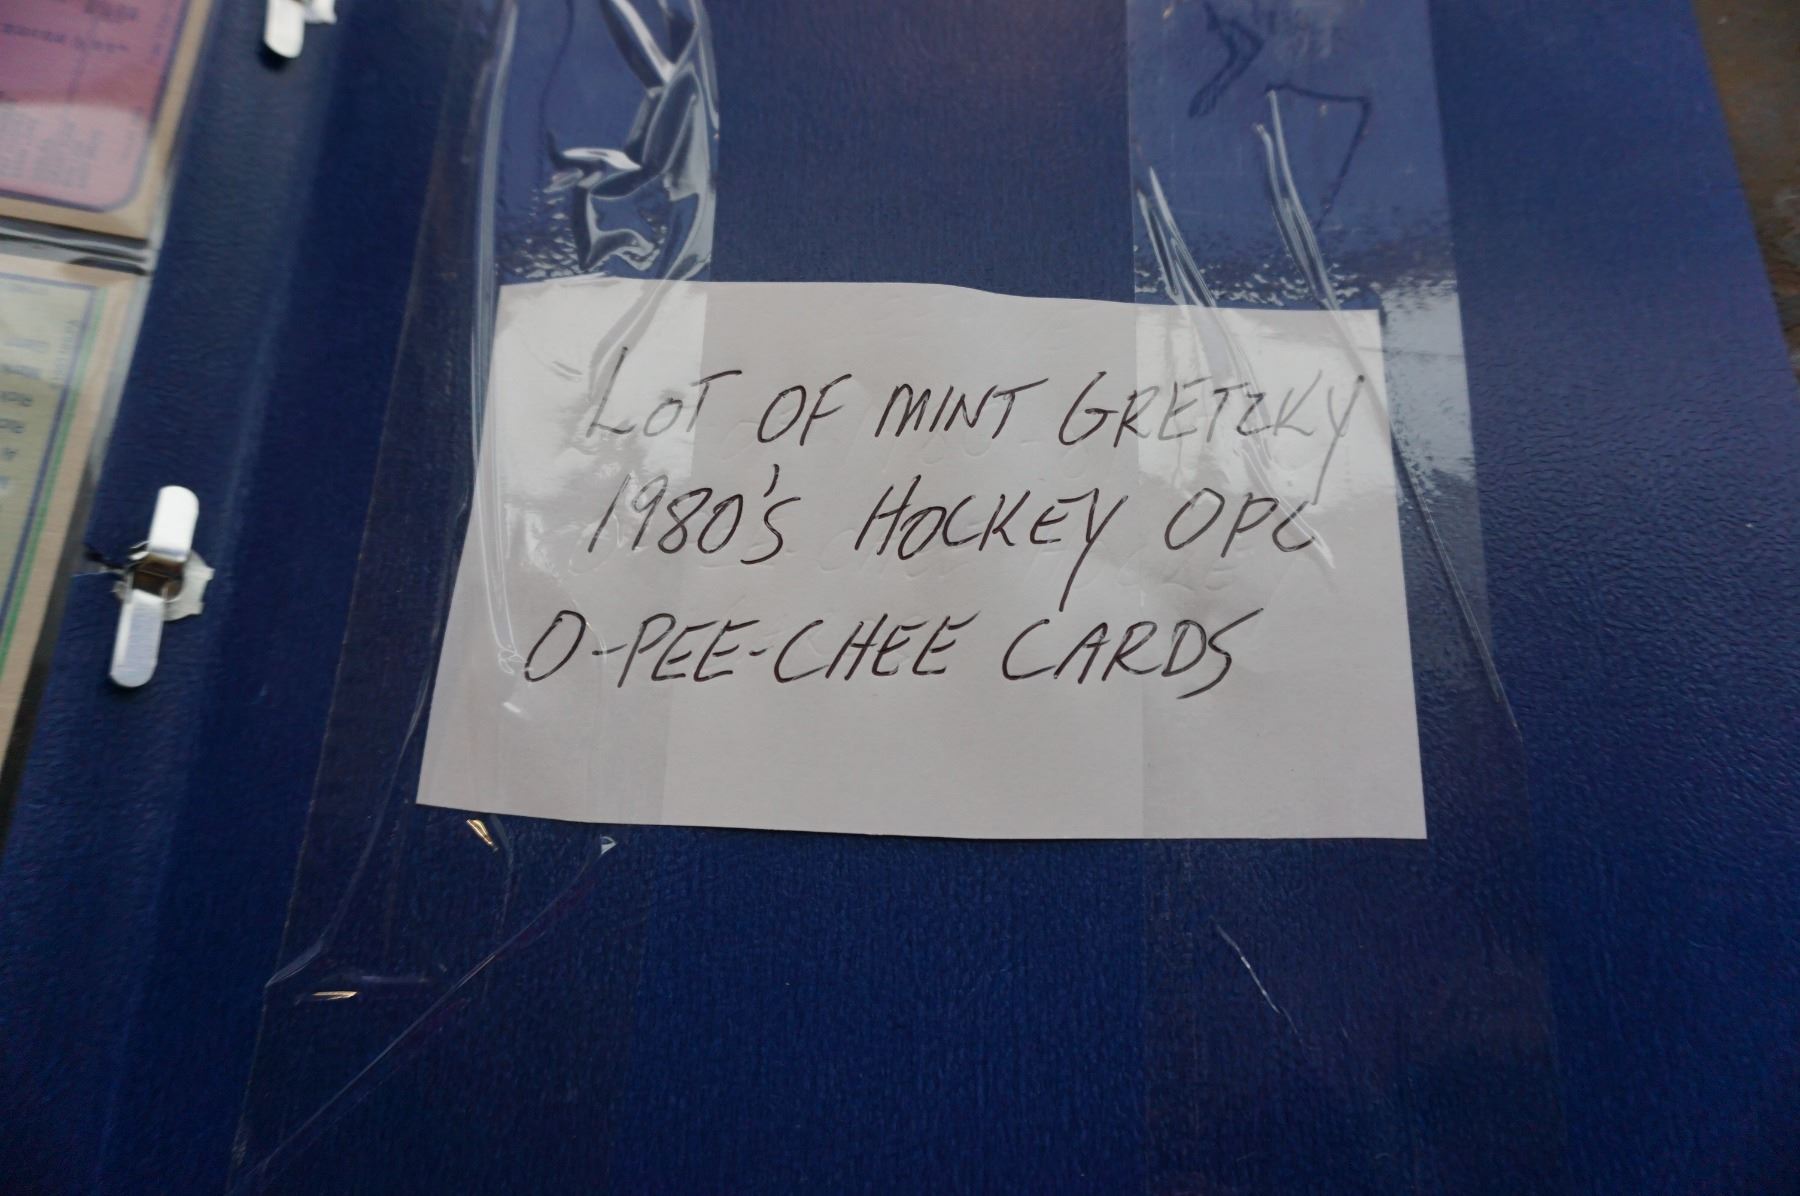 LOT OF MINT GRETZKY
1980'S HOCKEY OPC
O-PEE-CHEE CARDS